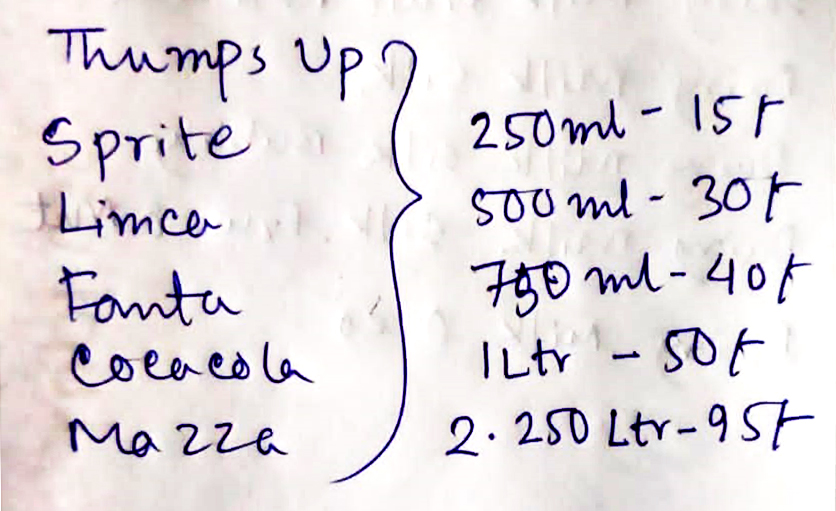 Thumps Up
Sprite
Limca
Fanta
Cocacola
Mazza
250ml - 15/-
500 ml - 30/-
750 ml - 40/-
1 Ltr - 50/-
2.250 Ltr - 95/-